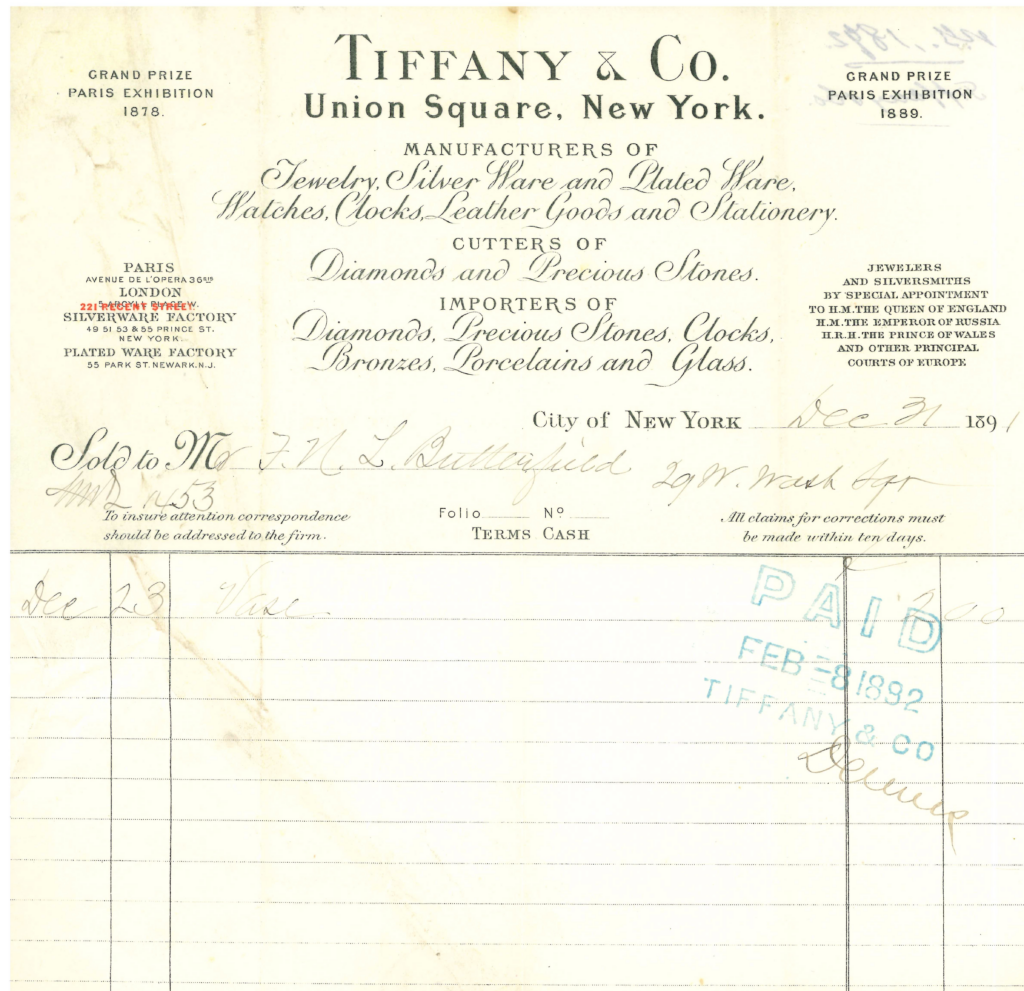 TIFFANY & CO.
Union Square, New York.
GRAND PRIZE
PARIS EXHIBITION
1878.
GRAND PRIZE
PARIS EXHIBITION
1889.
MANUFACTURERS OF
Jewelry, Silver Ware and Plated Ware,
Watches, Clocks, Leather Goods and Stationery.
CUTTERS OF
Diamonds and Precious Stones.
IMPORTERS OF
Diamonds, Precious Stones, Clocks,
Bronzes, Porcelains and Glass.
PARIS
AVENUE DE L'OPERA 36BIS
LONDON
5 ARGYLL PLACE W.
221 REGENT STREET.
SILVERWARE FACTORY
49 51 53 & 55 PRINCE ST.
NEW YORK.
PLATED WARE FACTORY
55 PARK ST. NEWARK. N.J.
JEWELERS
AND SILVERSMITHS
BY SPECIAL APPOINTMENT
TO H.M. THE QUEEN OF ENGLAND
H.M. THE EMPEROR OF RUSSIA
H.R.H. THE PRINCE OF WALES
AND OTHER PRINCIPAL
COURTS OF EUROPE
City of NEW YORK Dec 31 1891
Sold to Mr F. N. L. Butterfield
29 W. Wash Sqr
To insure attention correspondence
should be addressed to the firm.
Folio No
TERMS CASH
All claims for corrections must
be made within ten days.
Dec 23 Vase 2 00
PAID
FEB -8 1892
TIFFANY & CO